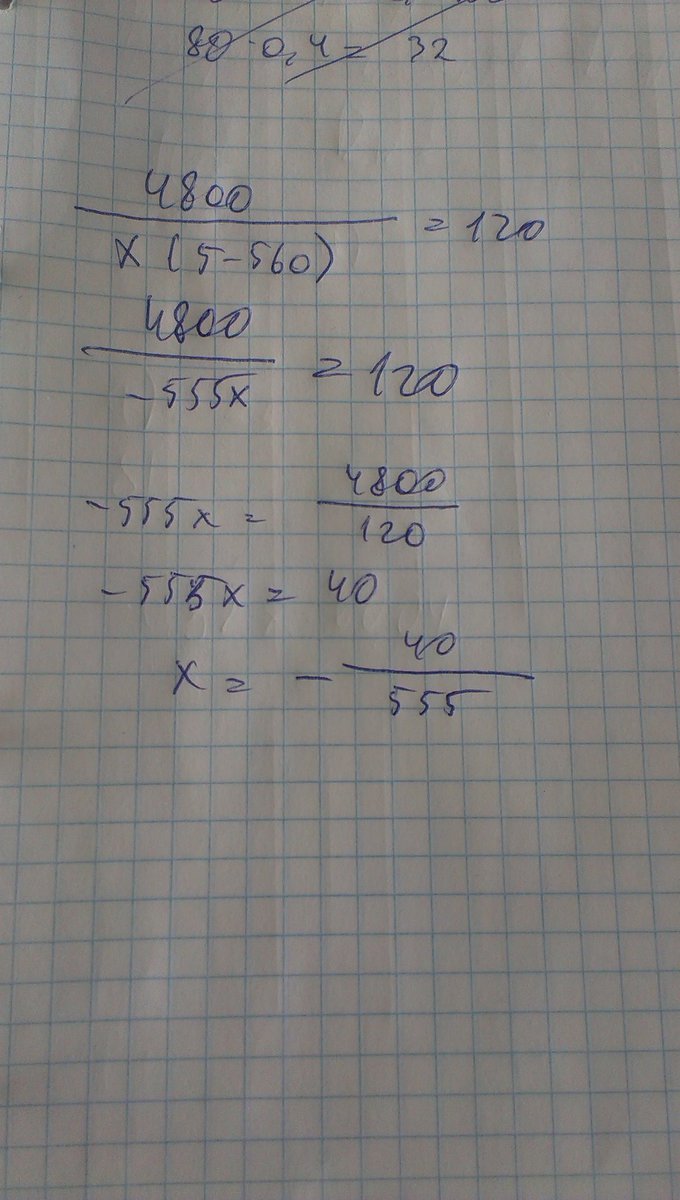 80·0,4 = 32
4800
x (5-560)
= 120
4800
-555x
= 120
-555x = 4800
120
-555x = 40
x = - 40
555